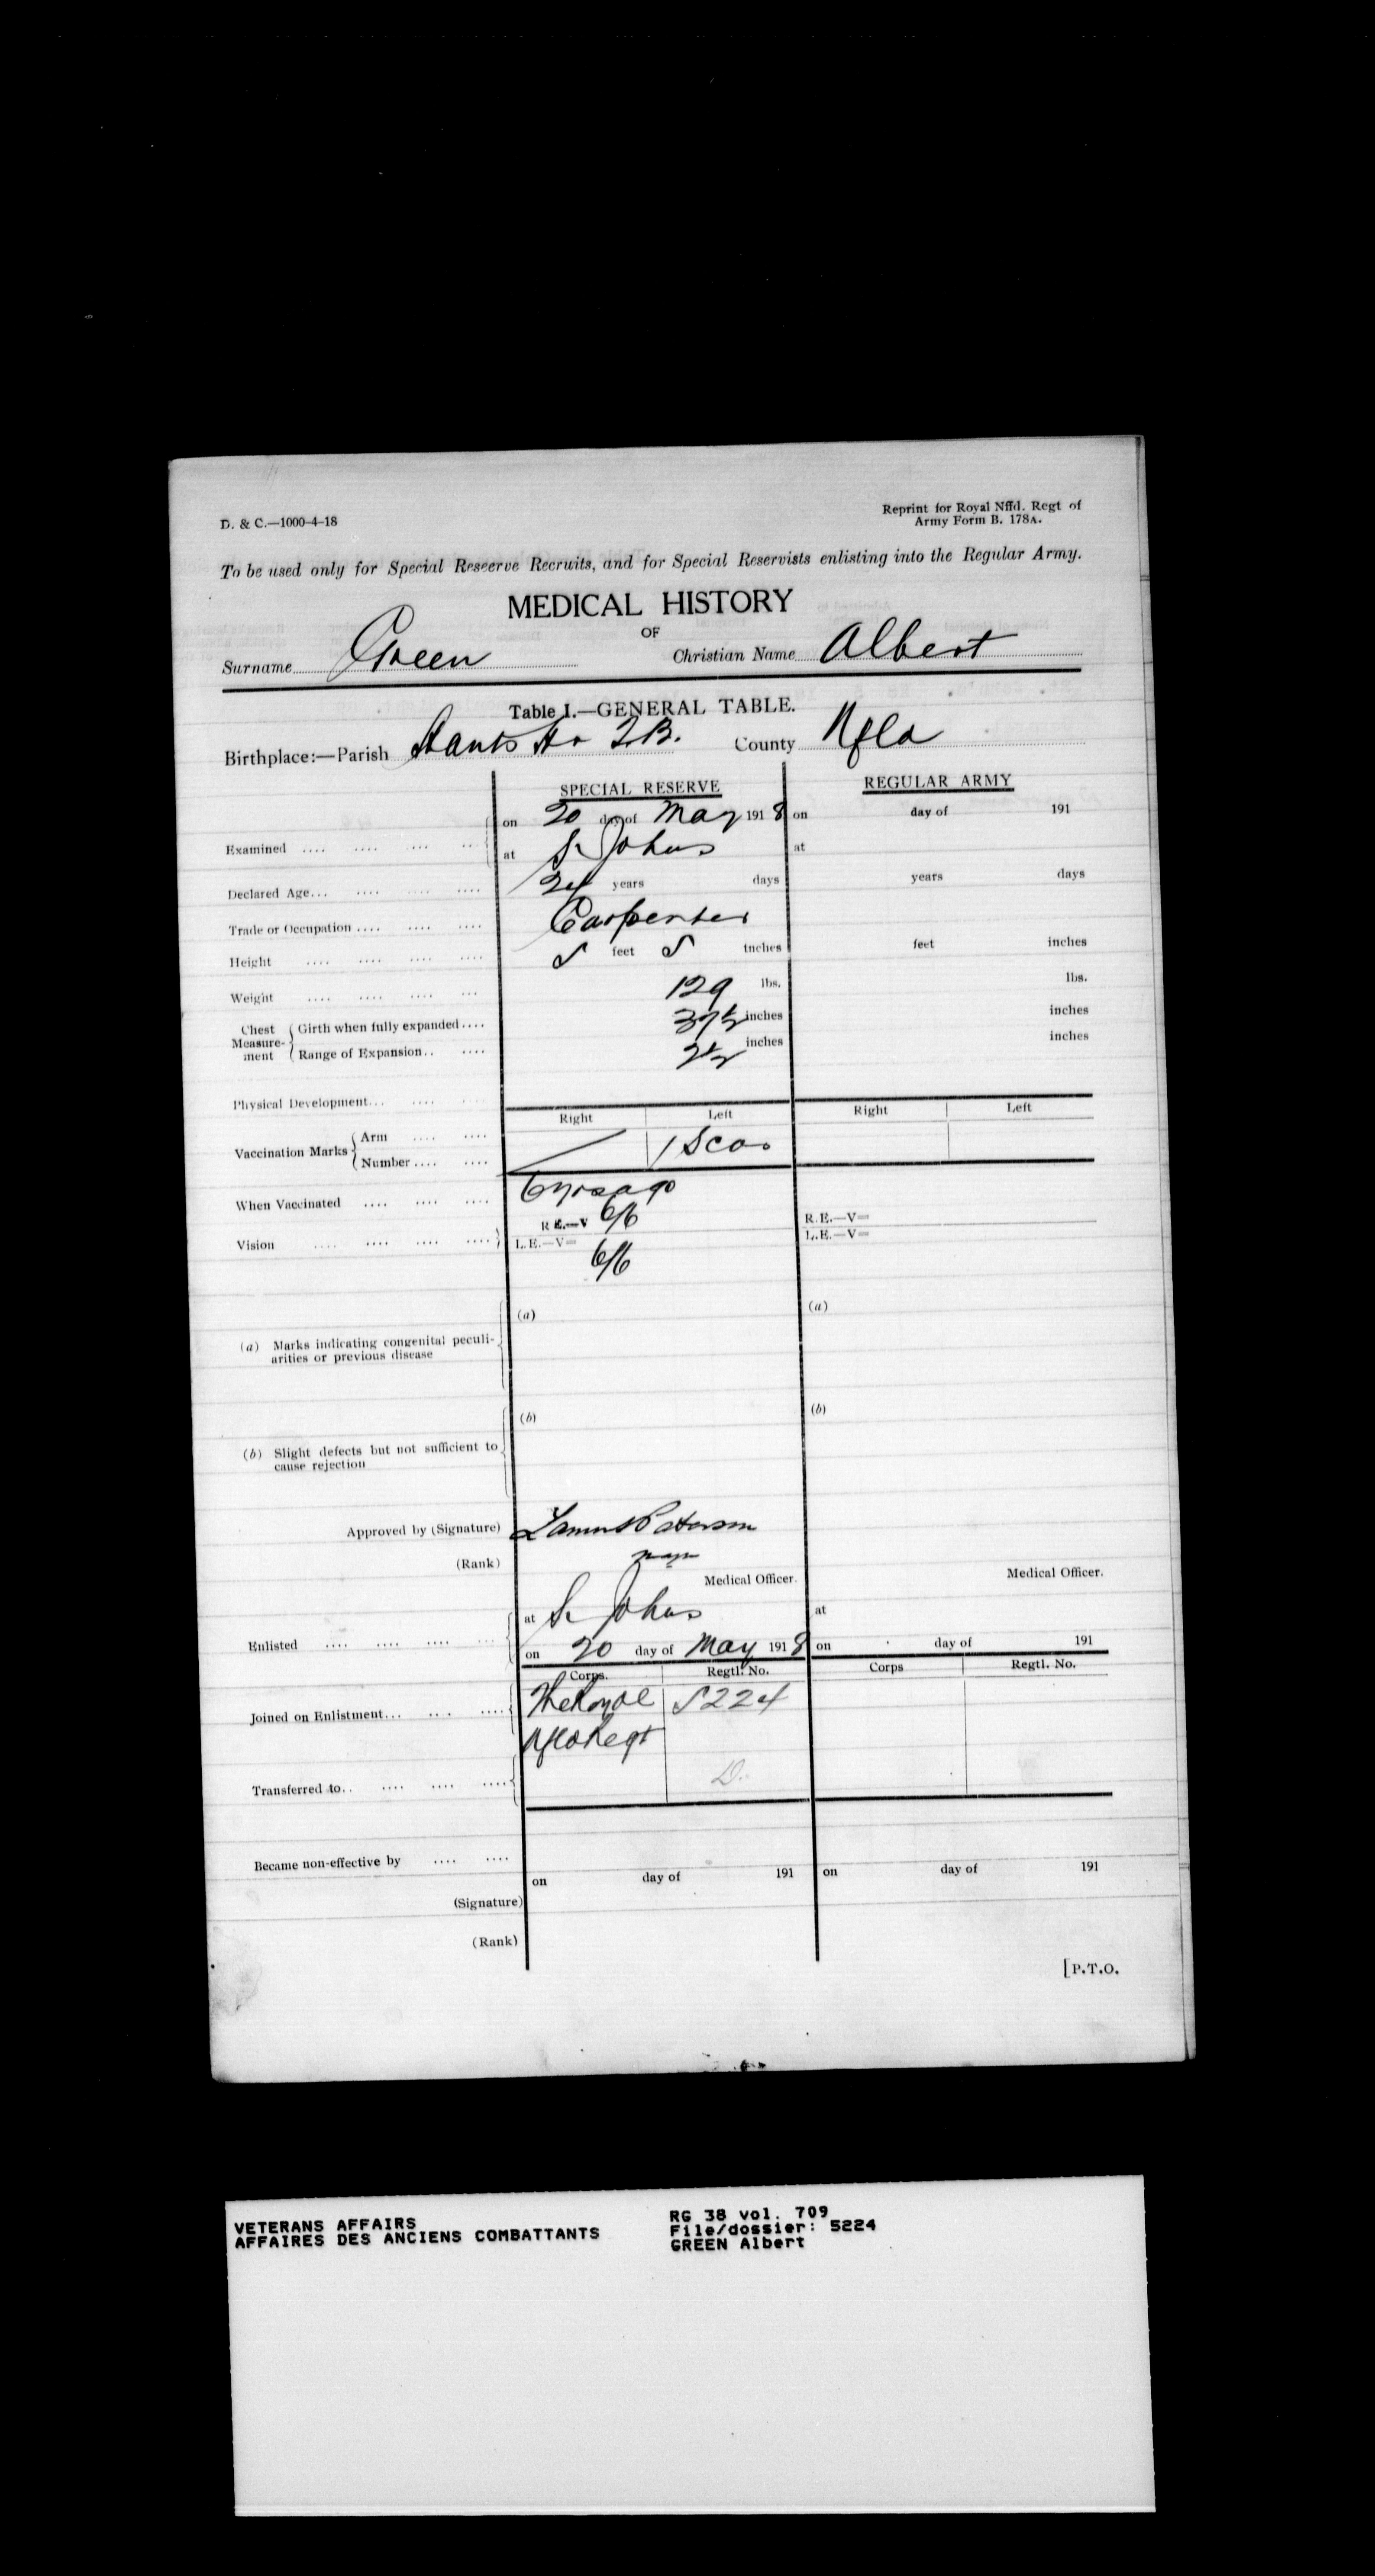 D. & C.—1000-4-18
Reprint for Royal Nffd. Regt of
Army Form B. 178A.
To be used only for Special Reserve Recruits, and for Special Reservists enlisting into the Regular Army.
MEDICAL HISTORY
OF
Surname Green Christian Name Albert
Table I.—GENERAL TABLE.
Birthplace:—Parish Hants Hr T.B. County Nfld
SPECIAL RESERVE REGULAR ARMY
Examined on 20 day of May 1918 on day of 191
at St Johns at
Declared Age 24 years days years days
Trade or Occupation Carpenter
Height 5 feet 5 Inches feet inches
Weight 129 lbs. lbs.
Chest Measurement Girth when fully expanded 37½ inches inches
Range of Expansion 2½ inches inches
Physical Development
Right Left Right Left
Vaccination Marks Arm
Number 1 Scar
When Vaccinated 6 yrs ago
Vision R.E.—V 6/6 R.E.—V=
L.E.—V= 6/6 L.E.—V=
(a) Marks indicating congenital peculi-
arities or previous disease (a) (a)
(b) Slight defects but not sufficient to
cause rejection (b) (b)
Approved by (Signature) Paterson
(Rank)
Medical Officer. Medical Officer.
Enlisted at St Johns at
on 20 day of May 1918 on day of 191
Corps. Regtl. No. Corps Regtl. No.
Joined on Enlistment The Royal 5224
Nfld Regt
Transferred to D.
Became non-effective by
on day of 191 on day of 191
(Signature)
(Rank)
[P.T.O.
VETERANS AFFAIRS
AFFAIRES DES ANCIENS COMBATTANTS
RG 38 vol. 709
File/dossier: 5224
GREEN Albert